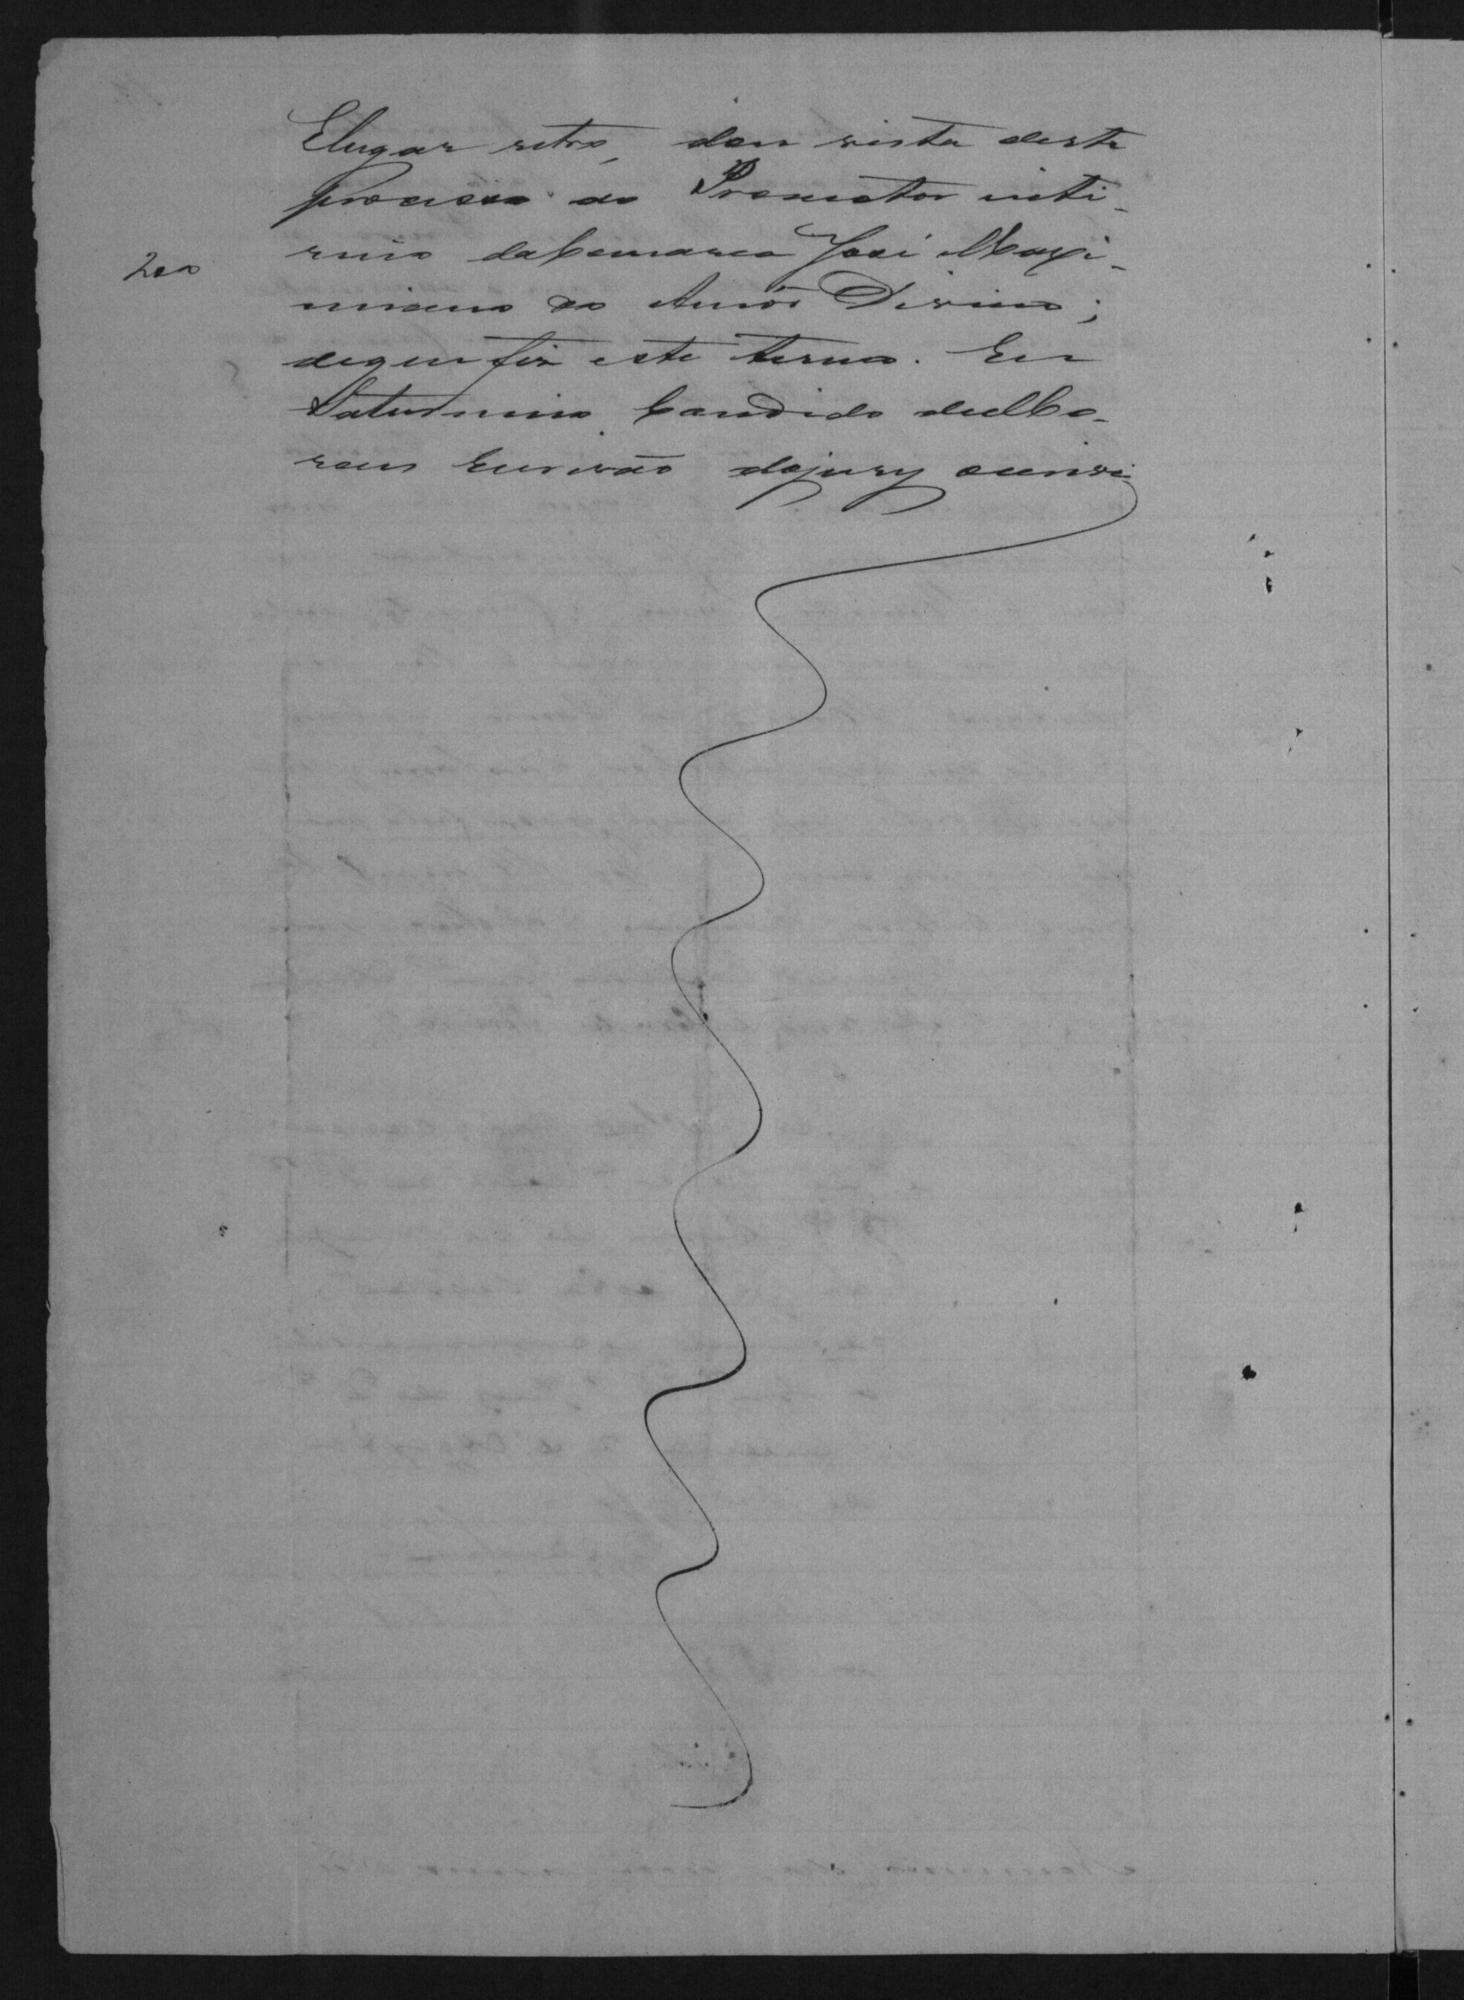 Elugar retro, dou vista deste
processo ao Promotor inte-
rino daComarca José Maxi-
200
miano do Amôr Divino;
dequefiz este termo. Eu
Saturnino Candido deMo-
raes Escrivão dojury escrevi